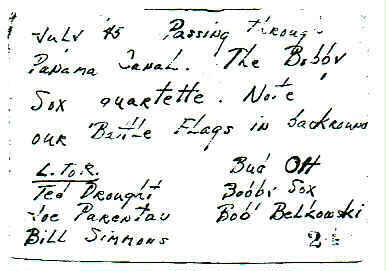 July '45 Passing through
Panama Canal. The Bobby
Sox quartette. Note
our Battle Flags in backround
L.To.R. Bud Ott
Ted Drought Bobby Sox
Joe Parentau Bob Belkowski
Bill Simmons 2